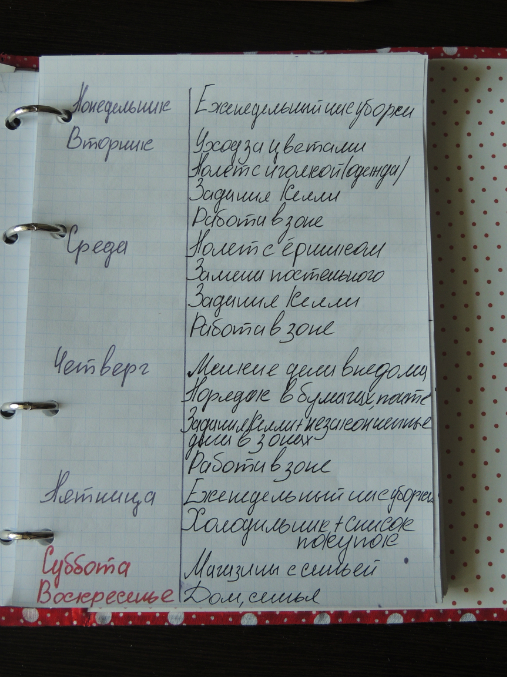 Понедельник Еженедельный час уборки
Вторник Уход за цветами
Полет с иголкой (одежда)
Задания Келли
Работа в зоне
Среда Полет с ёршиком
Замена постельного
Задания Келли
Работа в зоне
Четверг Мелкие дела вне дома
Порядок в бумагах, почте
Задания Келли + незаконченные
дела в зонах
Работа в зоне
Пятница Еженедельный час уборки
Холодильник + список
покупок
Суббота Магазины с семьей
Воскресенье Дом, семья